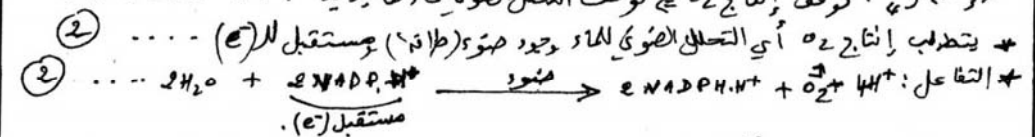 * يتطلب إنتاج O₂ أي التحلل الضوئي للماء وجود ضوء (طاقة) ومستقبل للـ (e⁻) .... ②
* التفاعل: 2H₂O + 2NADP.H⁺ ضوء → 2NADPH.H⁺ + O₂ + 4H⁺ .... ②
مستقبل (e⁻).